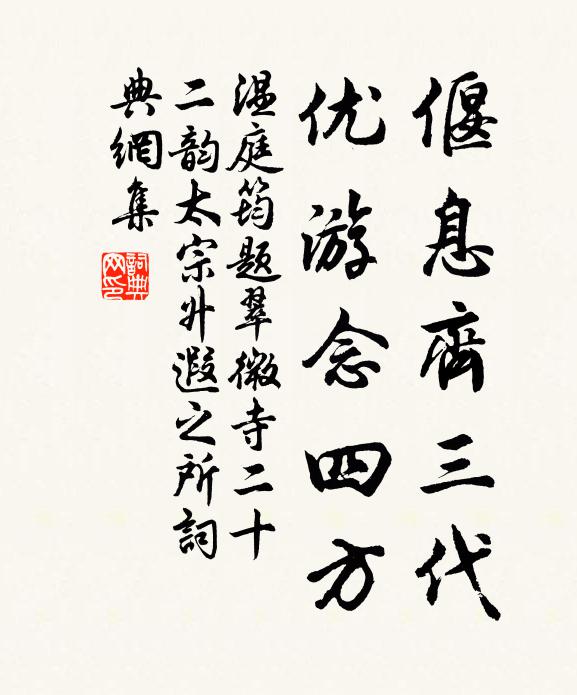 偃息齊三代
优游念四方
温庭筠題翠微寺二十
二韵太宗升遐之所詞
典網集
詞典网印